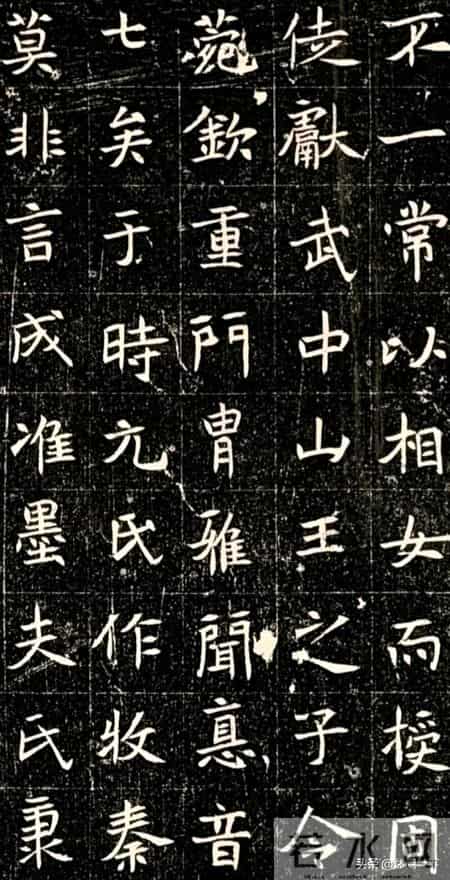 不一常以相女而授同
徒獻武中山王之子令
菀欽重門胄雅聞惪音
七矣于時元氏作牧秦
莫非言成准墨夫氏秉
若水网
头条